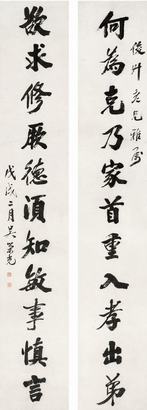 俊卿老兄雅屬
何為克乃家首重入孝出弟
欲求修厥德須知敏事慎言
戊戌二月吳榮光